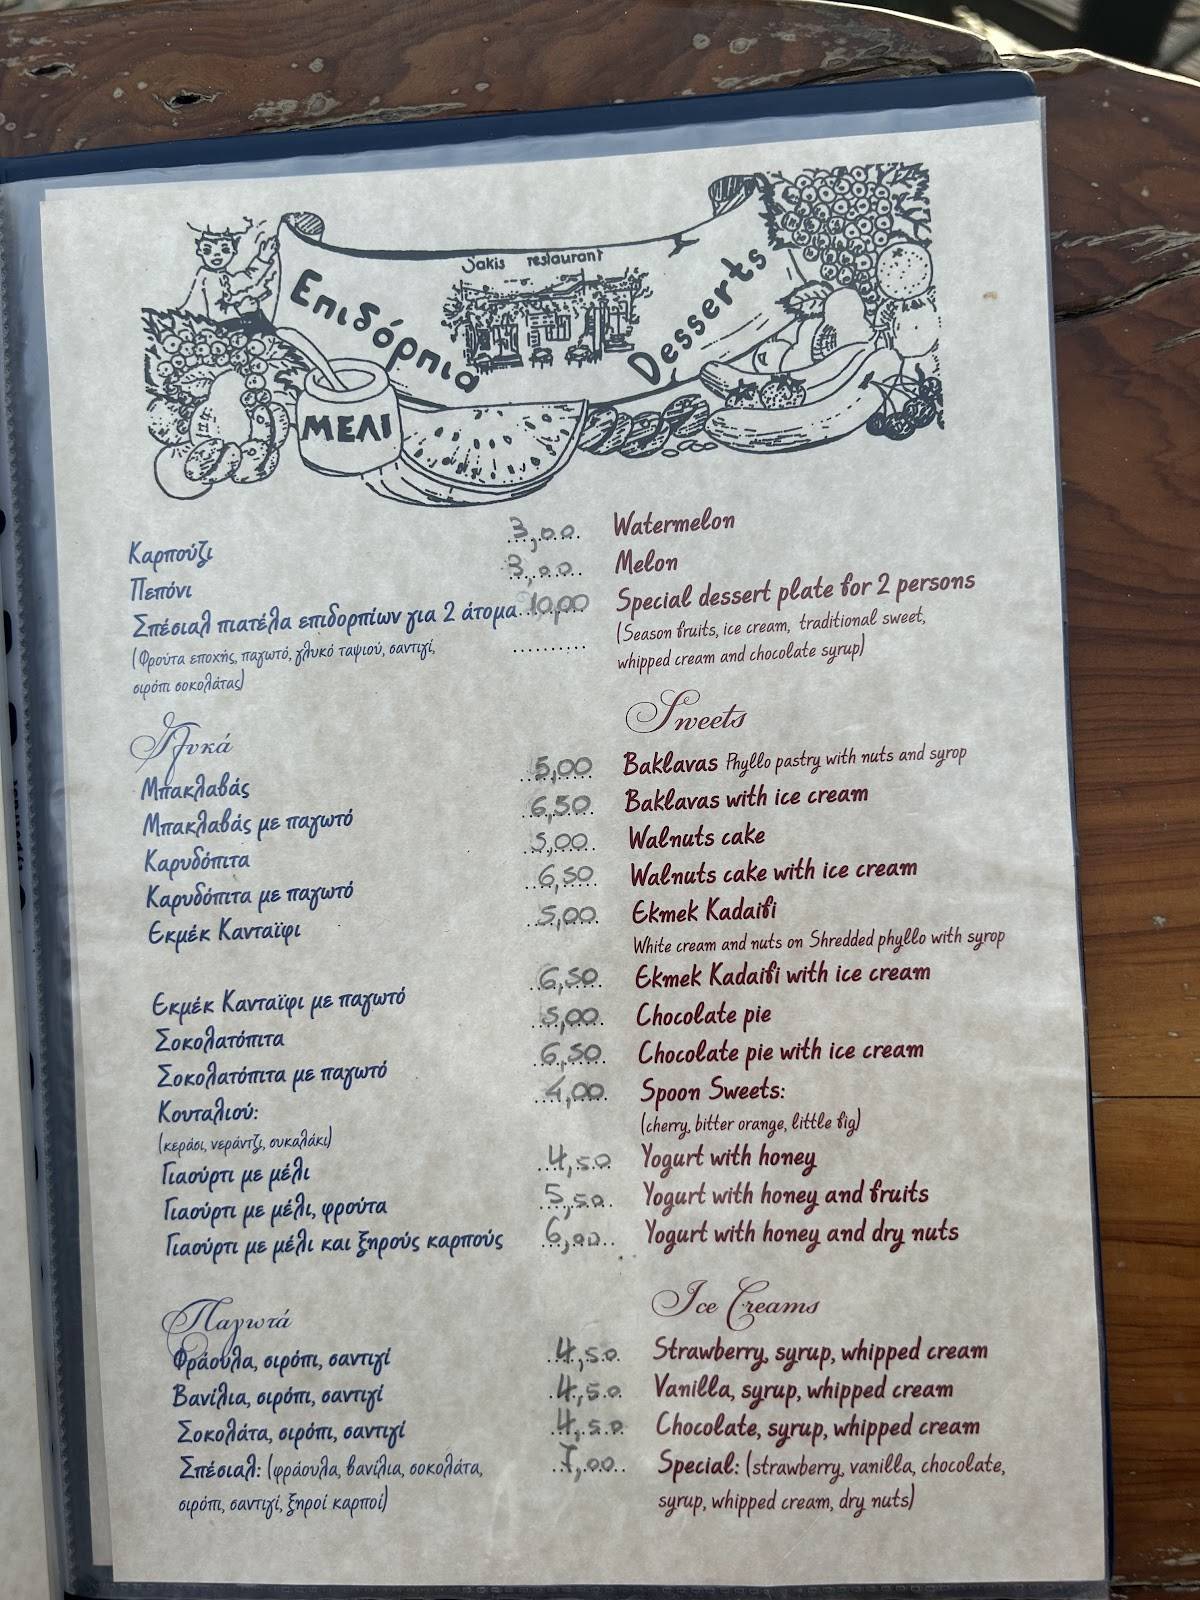 Sakis restaurant
Επιδόρπια
Desserts
ΜΕΛΙ
Καρπούζι 3,00 Watermelon
Πεπόνι 3,00 Melon
Σπέσιαλ πιατέλα επιδορπίων για 2 άτομα 10,00 Special dessert plate for 2 persons
(Φρούτα εποχής, παγωτό, γλυκό ταψιού, σαντιγί, .......... (Season fruits, ice cream, traditional sweet,
σιρόπι σοκολάτας) whipped cream and chocolate syrup)
Γλυκά Sweets
Μπακλαβάς 5,00 Baklavas Phyllo pastry with nuts and syrop
Μπακλαβάς με παγωτό 6,50 Baklavas with ice cream
Καρυδόπιτα 5,00 Walnuts cake
Καρυδόπιτα με παγωτό 6,50 Walnuts cake with ice cream
Εκμέκ Κανταϊφι 5,00 Ekmek Kadaifi
White cream and nuts on Shredded phyllo with syrop
Εκμέκ Κανταϊφι με παγωτό 6,50 Ekmek Kadaifi with ice cream
Σοκολατόπιτα 5,00 Chocolate pie
Σοκολατόπιτα με παγωτό 6,50 Chocolate pie with ice cream
Κουταλιού: 4,00 Spoon Sweets:
(κεράσι, νεράντζι, συκαλάκι) (cherry, bitter orange, little fig)
Γιαούρτι με μέλι 4,50 Yogurt with honey
Γιαούρτι με μέλι, φρούτα 5,50 Yogurt with honey and fruits
Γιαούρτι με μέλι και ξηρούς καρπούς 6,00 Yogurt with honey and dry nuts
Παγωτά Ice Creams
Φράουλα, σιρόπι, σαντιγί 4,50 Strawberry, syrup, whipped cream
Βανίλια, σιρόπι, σαντιγί 4,50 Vanilla, syrup, whipped cream
Σοκολάτα, σιρόπι, σαντιγί 4,50 Chocolate, syrup, whipped cream
Σπέσιαλ: (φράουλα, βανίλια, σοκολάτα, 7,00 Special: (strawberry, vanilla, chocolate,
σιρόπι, σαντιγί, ξηροί καρποί) syrup, whipped cream, dry nuts)